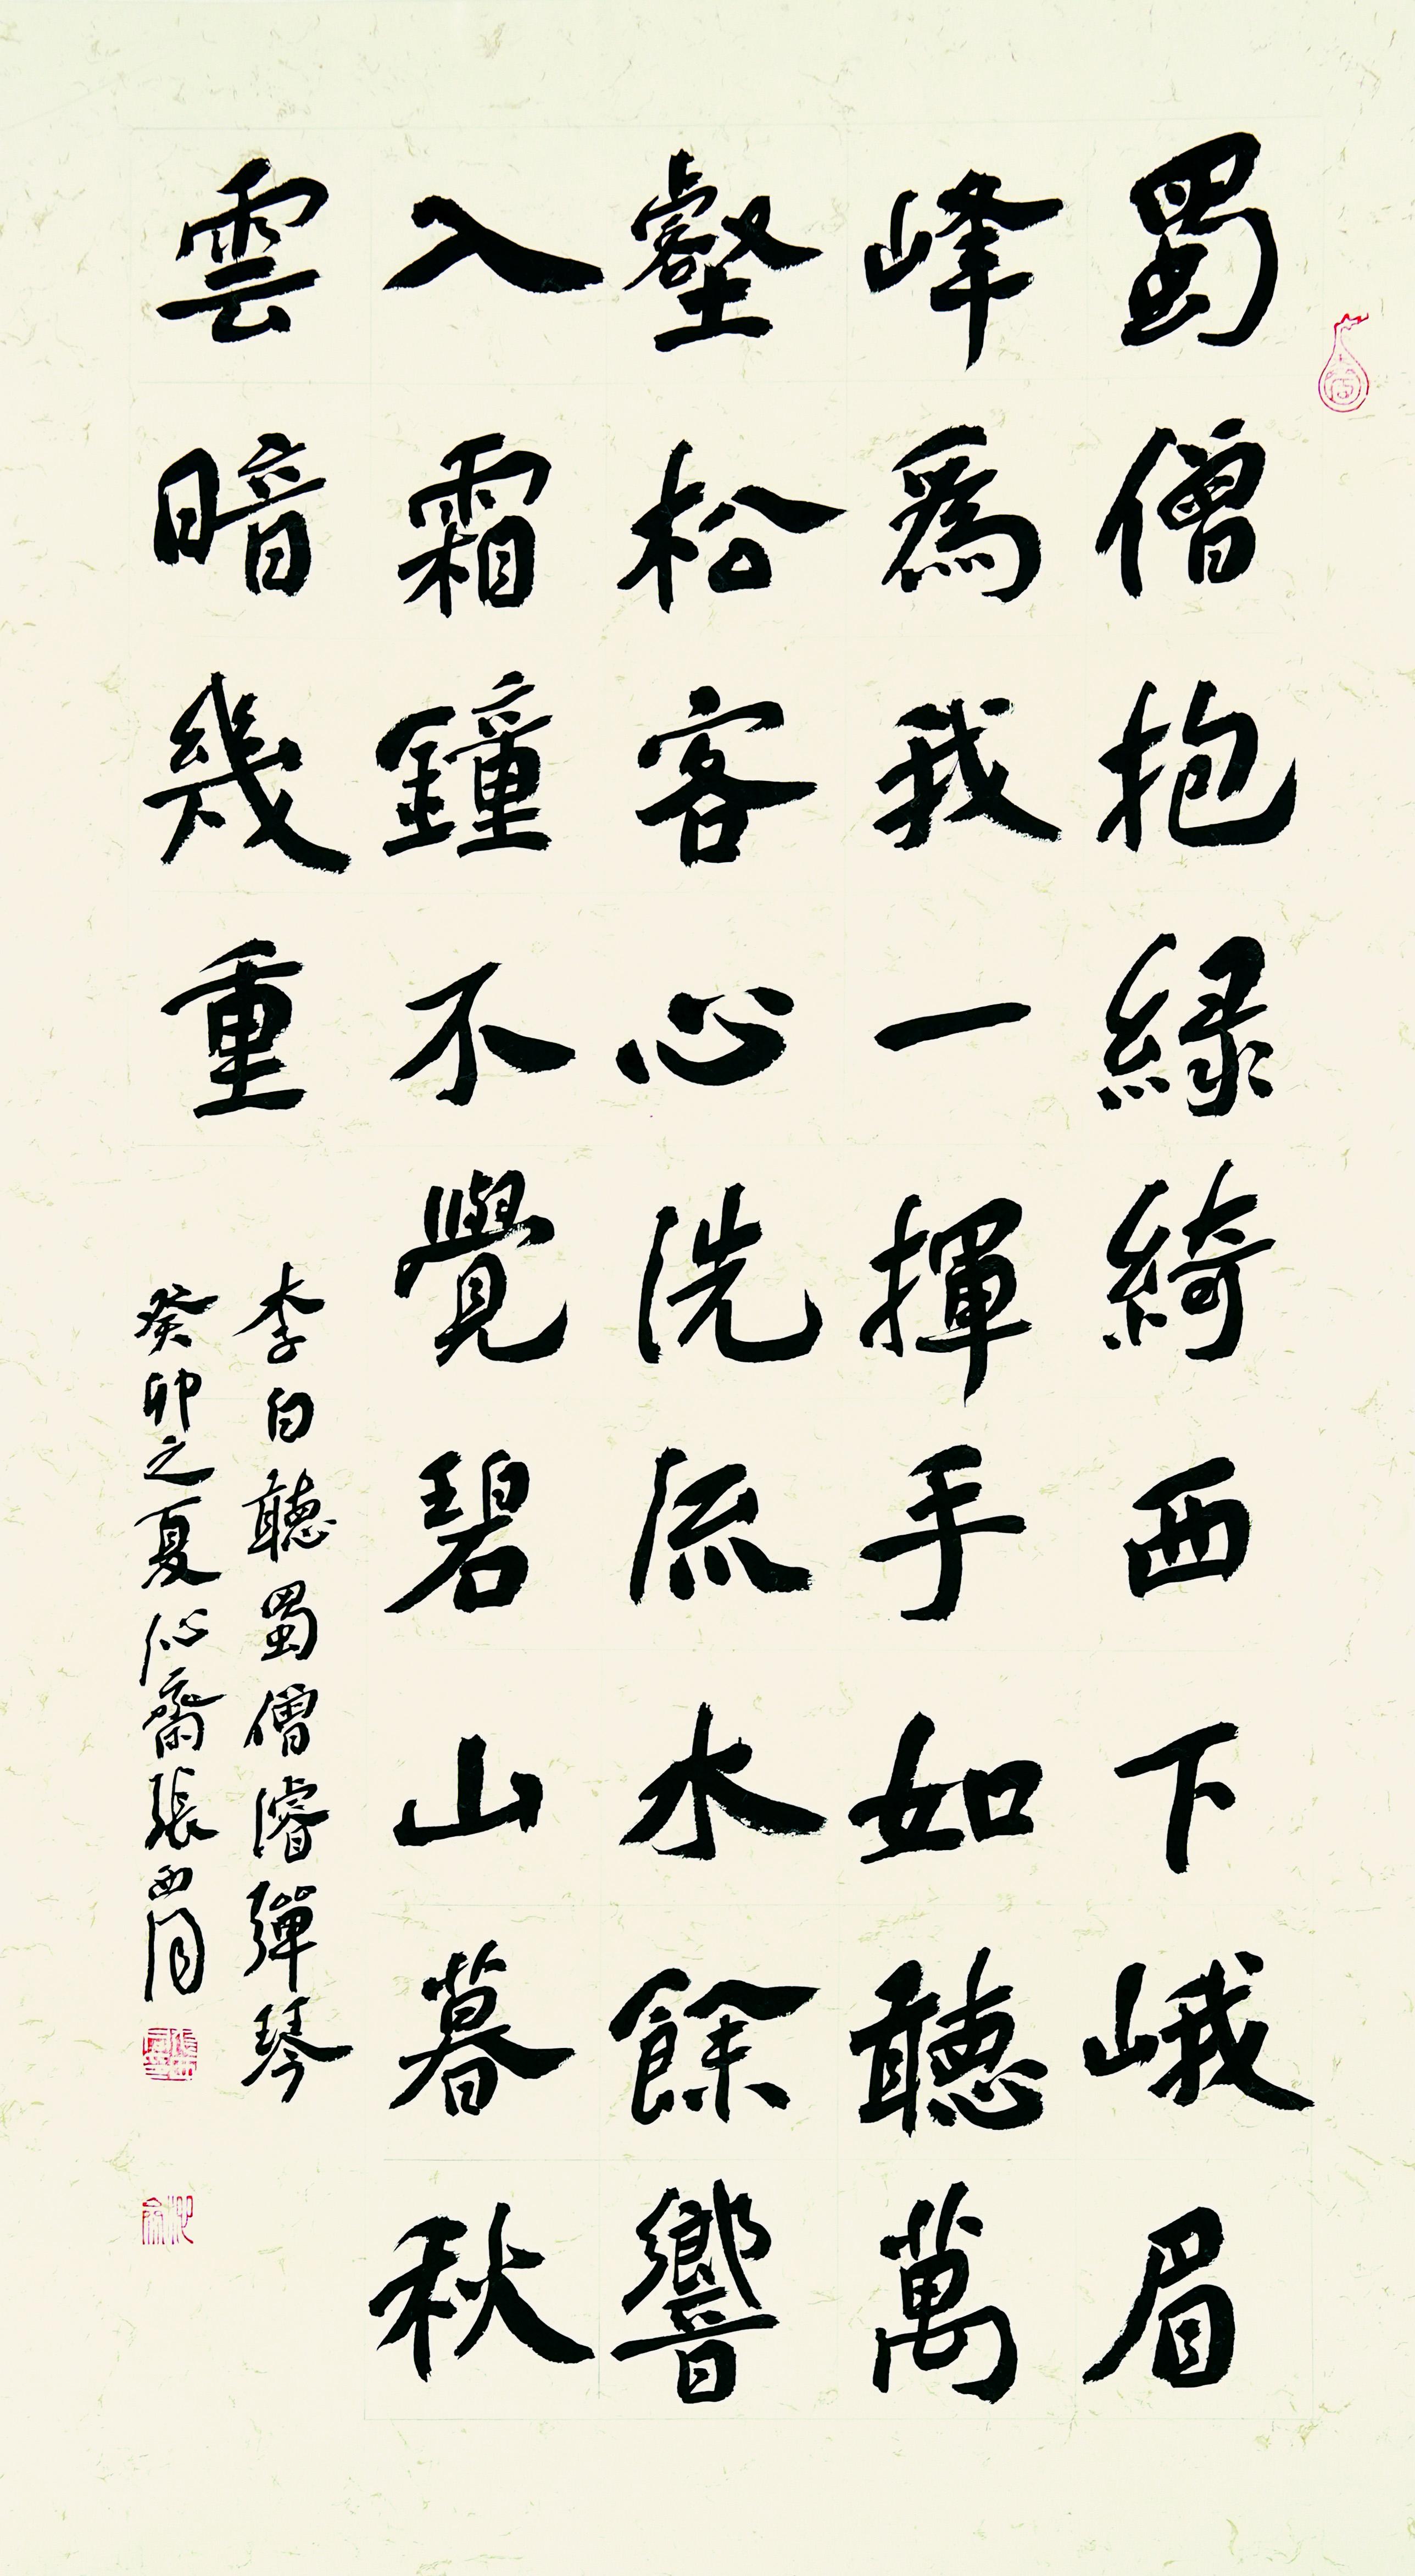 蜀僧抱綠綺西下峨眉
峰爲我一揮手如聽萬
壑松客心洗流水餘響
入霜鐘不覺碧山暮秋
雲暗幾重
李白聽蜀僧濬彈琴
癸卯之夏沁齋張西同